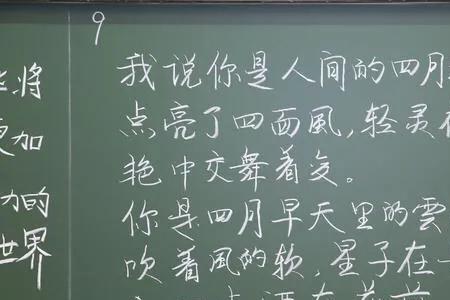 将
加
的
世界
9
我说你是人间的四月
点亮了四面風,轻灵
艳中交舞着变。
你是四月早天里的雲
吹着風的软,星子在